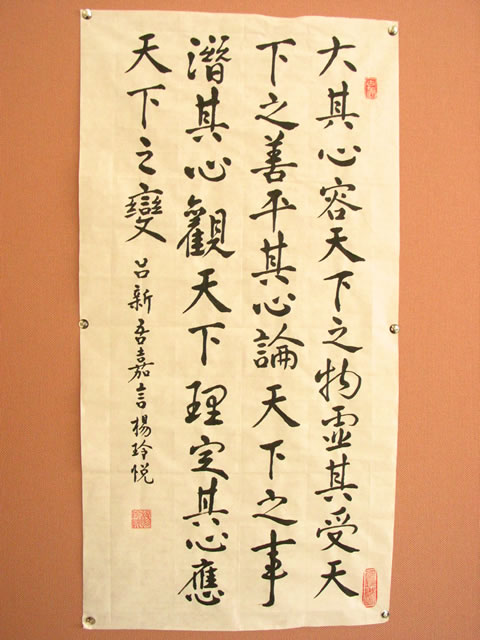 大其心容天下之物虛其受天
下之善平其心論天下之事
潛其心觀天下理定其心應
天下之變 呂新吾嘉言楊玲悦